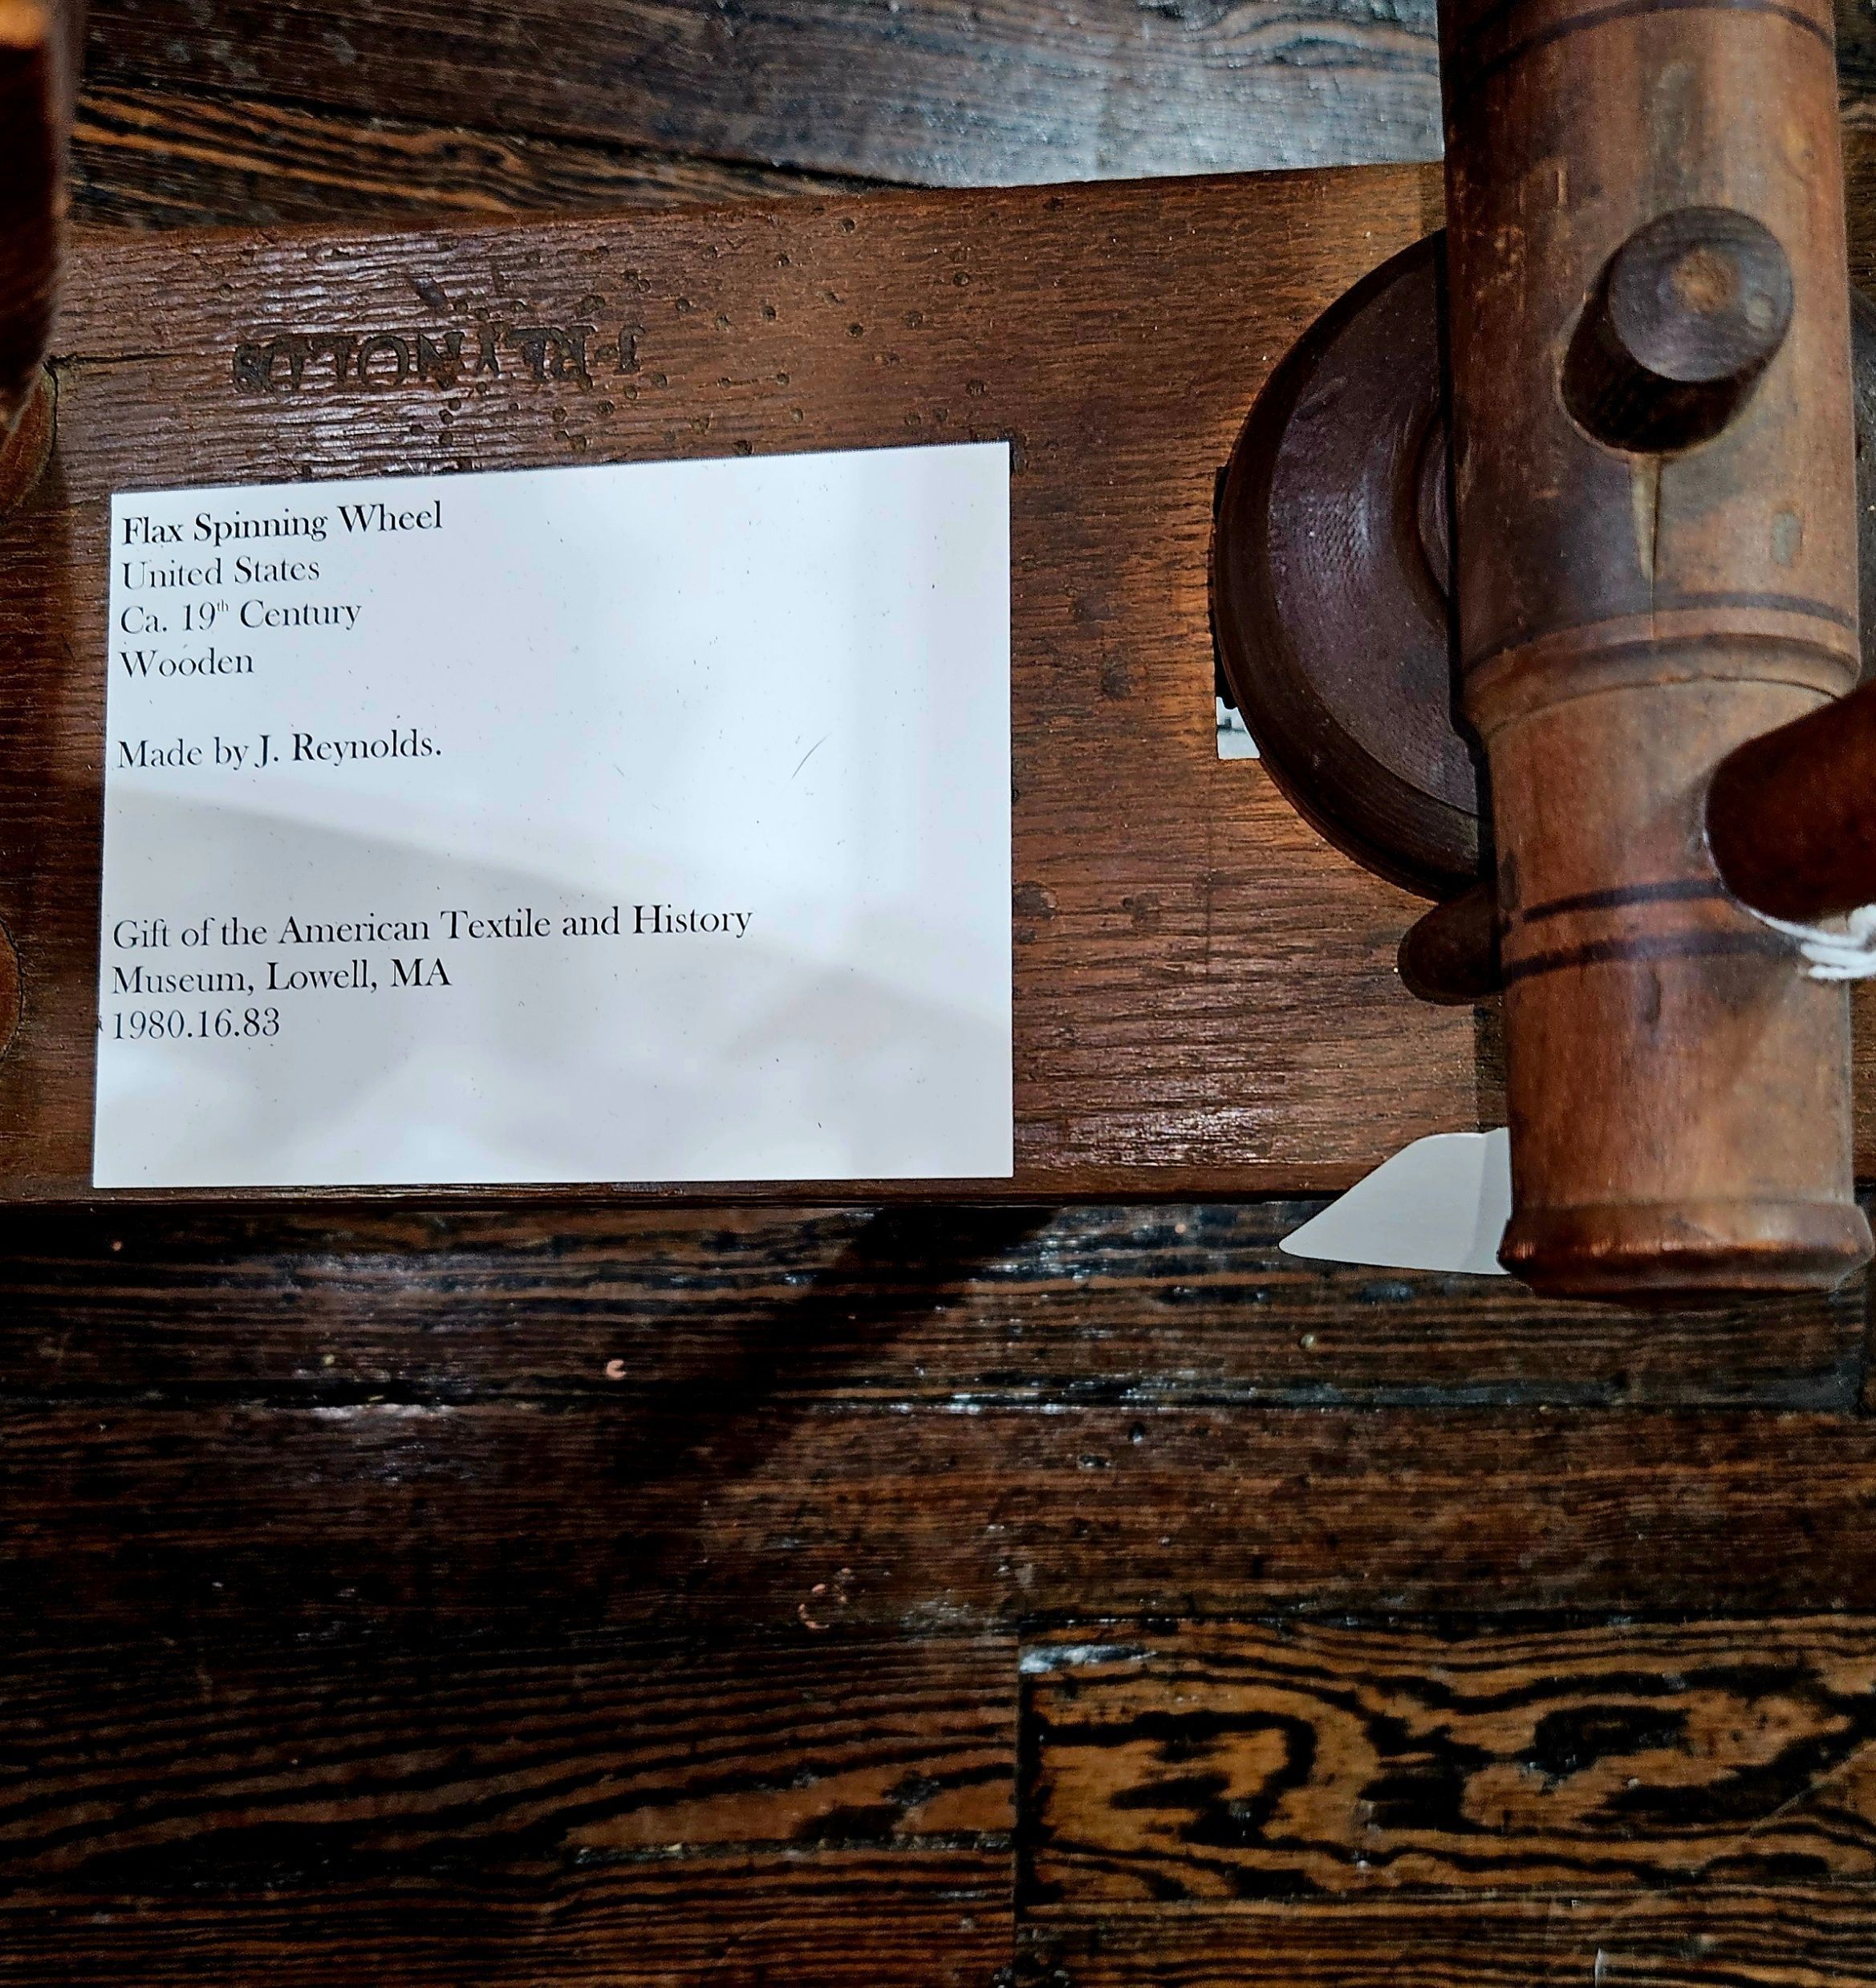 J·REYNOLDS
Flax Spinning Wheel
United States
Ca. 19th Century
Wooden
Made by J. Reynolds.
Gift of the American Textile and History
Museum, Lowell, MA
1980.16.83